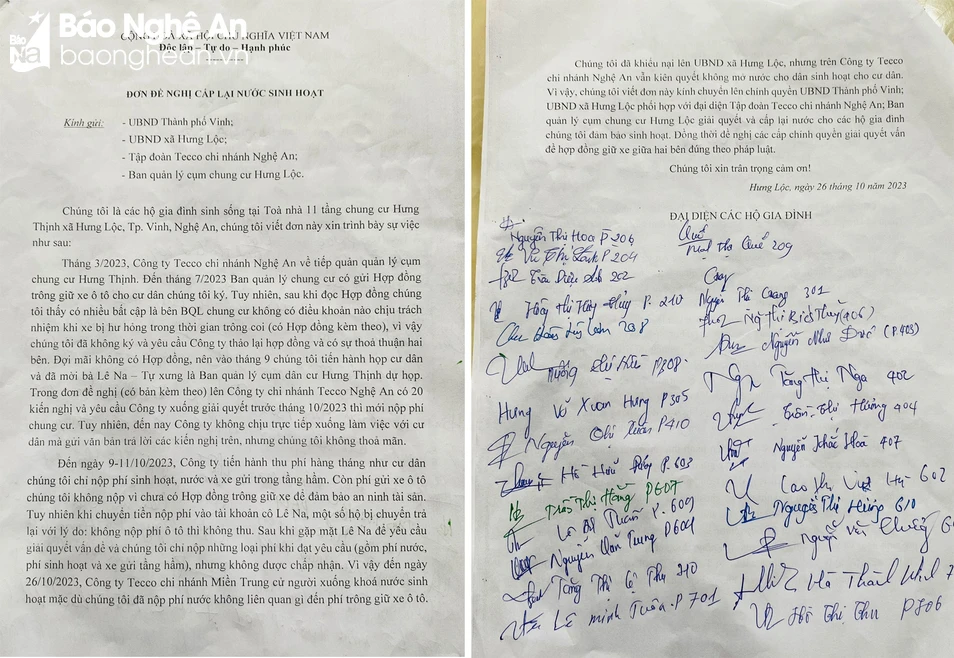 Báo Nghệ An
baonghean.vn
CỘNG HOÀ XÃ HỘI CHỦ NGHĨA VIỆT NAM
Độc lập – Tự do – Hạnh phúc
ĐƠN ĐỀ NGHỊ CẤP LẠI NƯỚC SINH HOẠT
Kính gửi: - UBND Thành phố Vinh;
- UBND xã Hưng Lộc;
- Tập đoàn Tecco chi nhánh Nghệ An;
- Ban quản lý cụm chung cư Hưng Lộc.
Chúng tôi là các hộ gia đình sinh sống tại Toà nhà 11 tầng chung cư Hưng
Thịnh xã Hưng Lộc, Tp. Vinh, Nghệ An, chúng tôi viết đơn này xin trình bày sự việc
như sau:
Tháng 3/2023, Công ty Tecco chi nhánh Nghệ An về tiếp quản quản lý cụm
chung cư Hưng Thịnh. Đến tháng 7/2023 Ban quản lý chung cư có gửi Hợp đồng
trông giữ xe ô tô cho cư dân chúng tôi ký. Tuy nhiên, sau khi đọc Hợp đồng chúng
tôi thấy có nhiều bất cập là bên BQL chung cư không có điều khoản nào chịu trách
nhiệm khi xe bị hư hỏng trong thời gian trông coi (có Hợp đồng kèm theo), vì vậy
chúng tôi đã không ký và yêu cầu Công ty thảo lại hợp đồng và có sự thoả thuận hai
bên. Đợi mãi không có Hợp đồng, nên vào tháng 9 chúng tôi tiến hành họp cư dân
và đã mời bà Lê Na – Tự xưng là Ban quản lý cụm dân cư Hưng Thịnh dự họp.
Trong đơn đề nghị (có bản kèm theo) lên Công ty chi nhánh Tecco Nghệ An có 20
kiến nghị và yêu cầu Công ty xuống giải quyết trước tháng 10/2023 thì mới nộp phí
chung cư. Tuy nhiên, đến nay Công ty không chịu trực tiếp xuống làm việc với cư
dân mà gửi văn bản trả lời các kiến nghị trên, nhưng chúng tôi không thoả mãn.
Đến ngày 9-11/10/2023, Công ty tiến hành thu phí hàng tháng như cư dân
chúng tôi chỉ nộp phí sinh hoạt, nước và xe gửi trong tầng hầm. Còn phí gửi xe ô tô
chúng tôi không nộp vì chưa có Hợp đồng trông giữ xe để đảm bảo an ninh tài sản.
Tuy nhiên khi chuyển tiền nộp vào tài khoản cô Lê Na, một số hộ bị chuyển trả
lại với lý do: không nộp phí ô tô thì không thu. Sau khi gặp mặt Lê Na để yêu cầu
giải quyết vấn đề và chúng tôi chỉ nộp những loại phí khi đạt yêu cầu (gồm phí nước,
phí sinh hoạt và xe gửi tầng hầm), nhưng không được chấp nhận. Vì vậy đến ngày
26/10/2023, Công ty Tecco chi nhánh Miền Trung cử người xuống khoá nước sinh
hoạt mặc dù chúng tôi đã nộp phí nước không liên quan gì đến phí trông giữ xe ô tô.
Chúng tôi đã khiếu nại lên UBND xã Hưng Lộc, nhưng trên Công ty Tecco
chi nhánh Nghệ An vẫn kiên quyết không mở nước cho dân sinh hoạt cho cư dân.
Vì vậy, chúng tôi viết đơn này kính chuyển lên chính quyền UBND Thành phố Vinh;
UBND xã Hưng Lộc phối hợp với đại diện Tập đoàn Tecco chi nhánh Nghệ An; Ban
quản lý cụm chung cư Hưng Lộc giải quyết và cấp lại nước cho các hộ gia đình
chúng tôi đảm bảo sinh hoạt. Đồng thời đề nghị các cấp chính quyền giải quyết vấn
đề hợp đồng giữ xe giữa hai bên đúng theo pháp luật.
Chúng tôi xin trân trọng cảm ơn!
Hưng Lộc, ngày 26 tháng 10 năm 2023
ĐẠI DIỆN CÁC HỘ GIA ĐÌNH
Nguyễn Thị Hoa P 206
P 204
Trần Diệu 202
Hoàng Thị P. 210
208
P308
Hưng Võ Xuân Hưng P305
Nguyễn Thị Xuân P410
Hồ Hữu P. 603
Trần Thị Hằng P607
Lê Bá Tuấn P. 609
Nguyễn Văn Trung P604
Tăng Thị 710
Lê Minh Tuấn P 701
Quế
Thị Quế 209
Nguyễn Thị 301
Ngô Thị Bích Thủy (406)
Nguyễn Như (P.403)
Nga Tăng Thị Nga 402
Trần Thị Hương 404
Nguyễn Khắc Hoà 407
Cao Thị 602
Nguyễn Thị Hùng 610
Nguyễn Văn
Hà Thành Vinh
Hồ Thị Thu P706